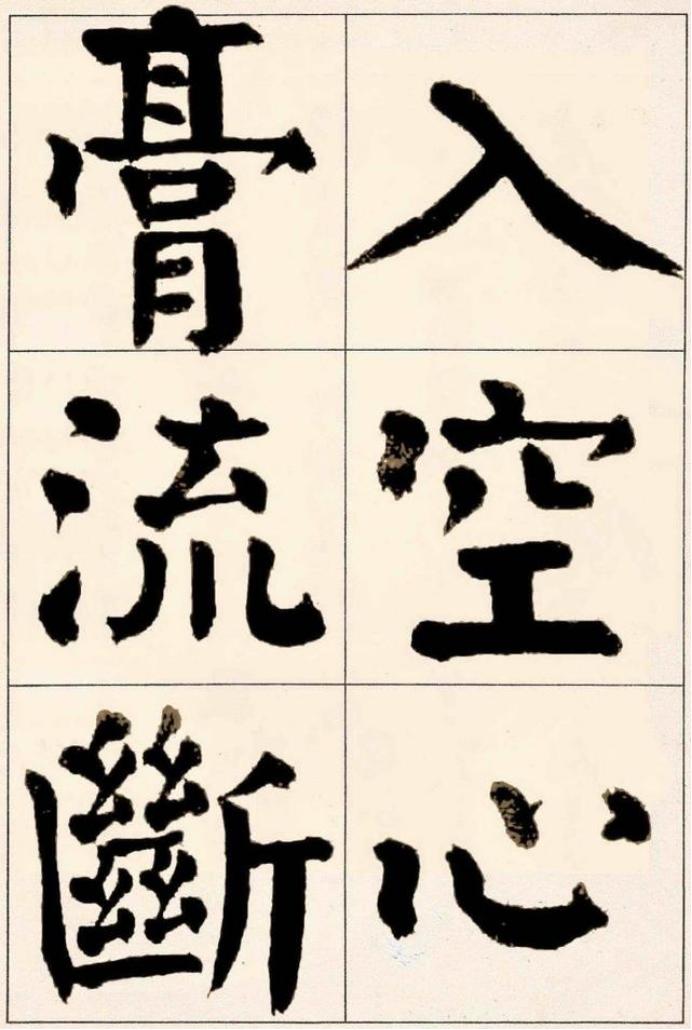 入空心
膏流斷